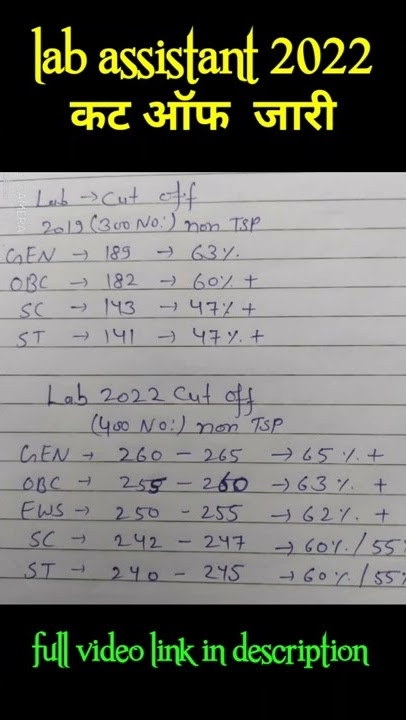 lab assistant 2022
कट ऑफ जारी
Lab → Cut off
2019 (300 No:) non TSP
GEN → 189 → 63%.
OBC → 182 → 60% +
SC → 143 → 47% +
ST → 141 → 47% +
Lab 2022 Cut off
(400 No:) non TSP
GEN → 260 - 265 → 65% +
OBC → 255 - 260 → 63% +
EWS → 250 - 255 → 62% +
SC → 242 - 247 → 60% / 55%
ST → 240 - 245 → 60% / 55%
full video link in description